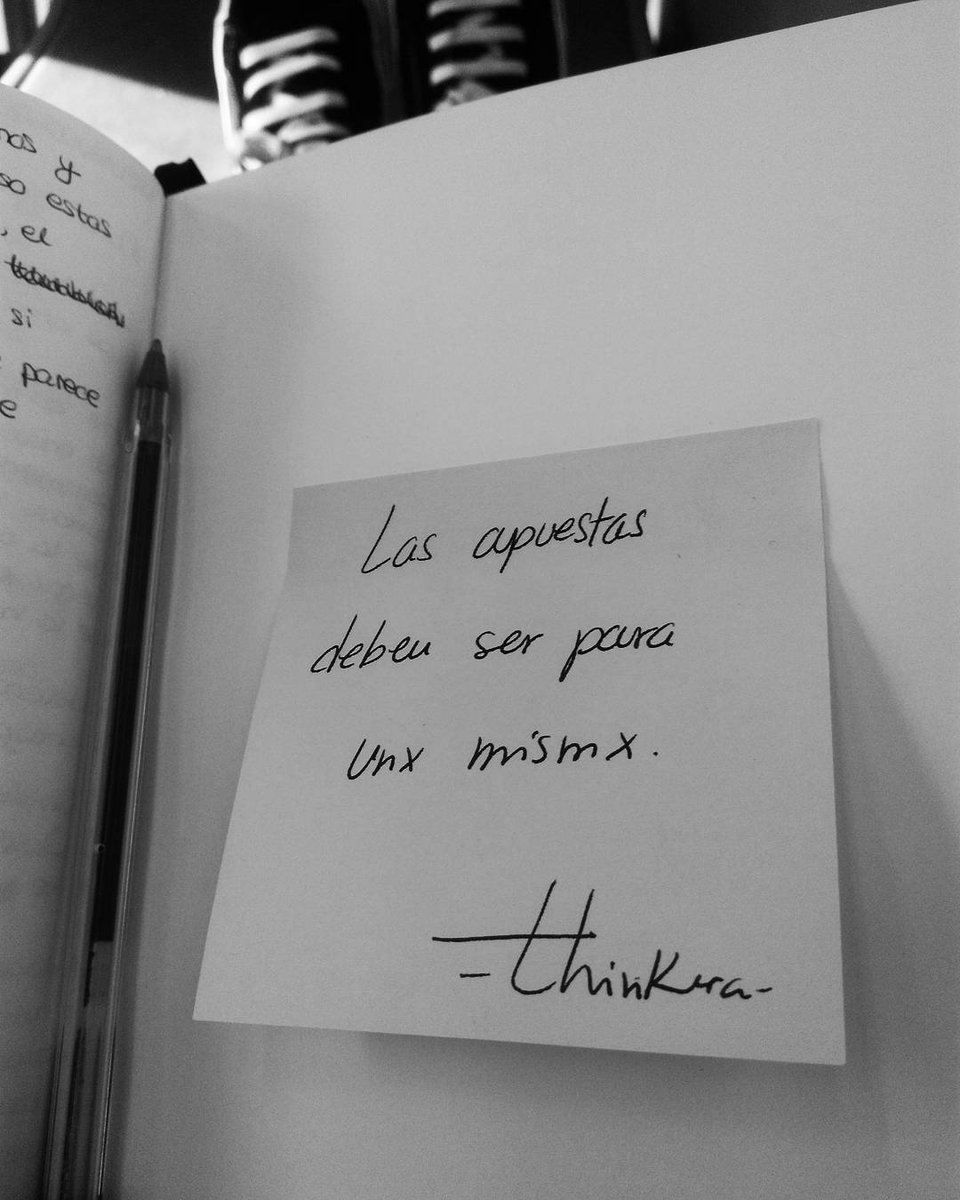 nos y
so estas
, el
si
parece
e
Las apuestas
deben ser para
unx mismx.
-thinkera-